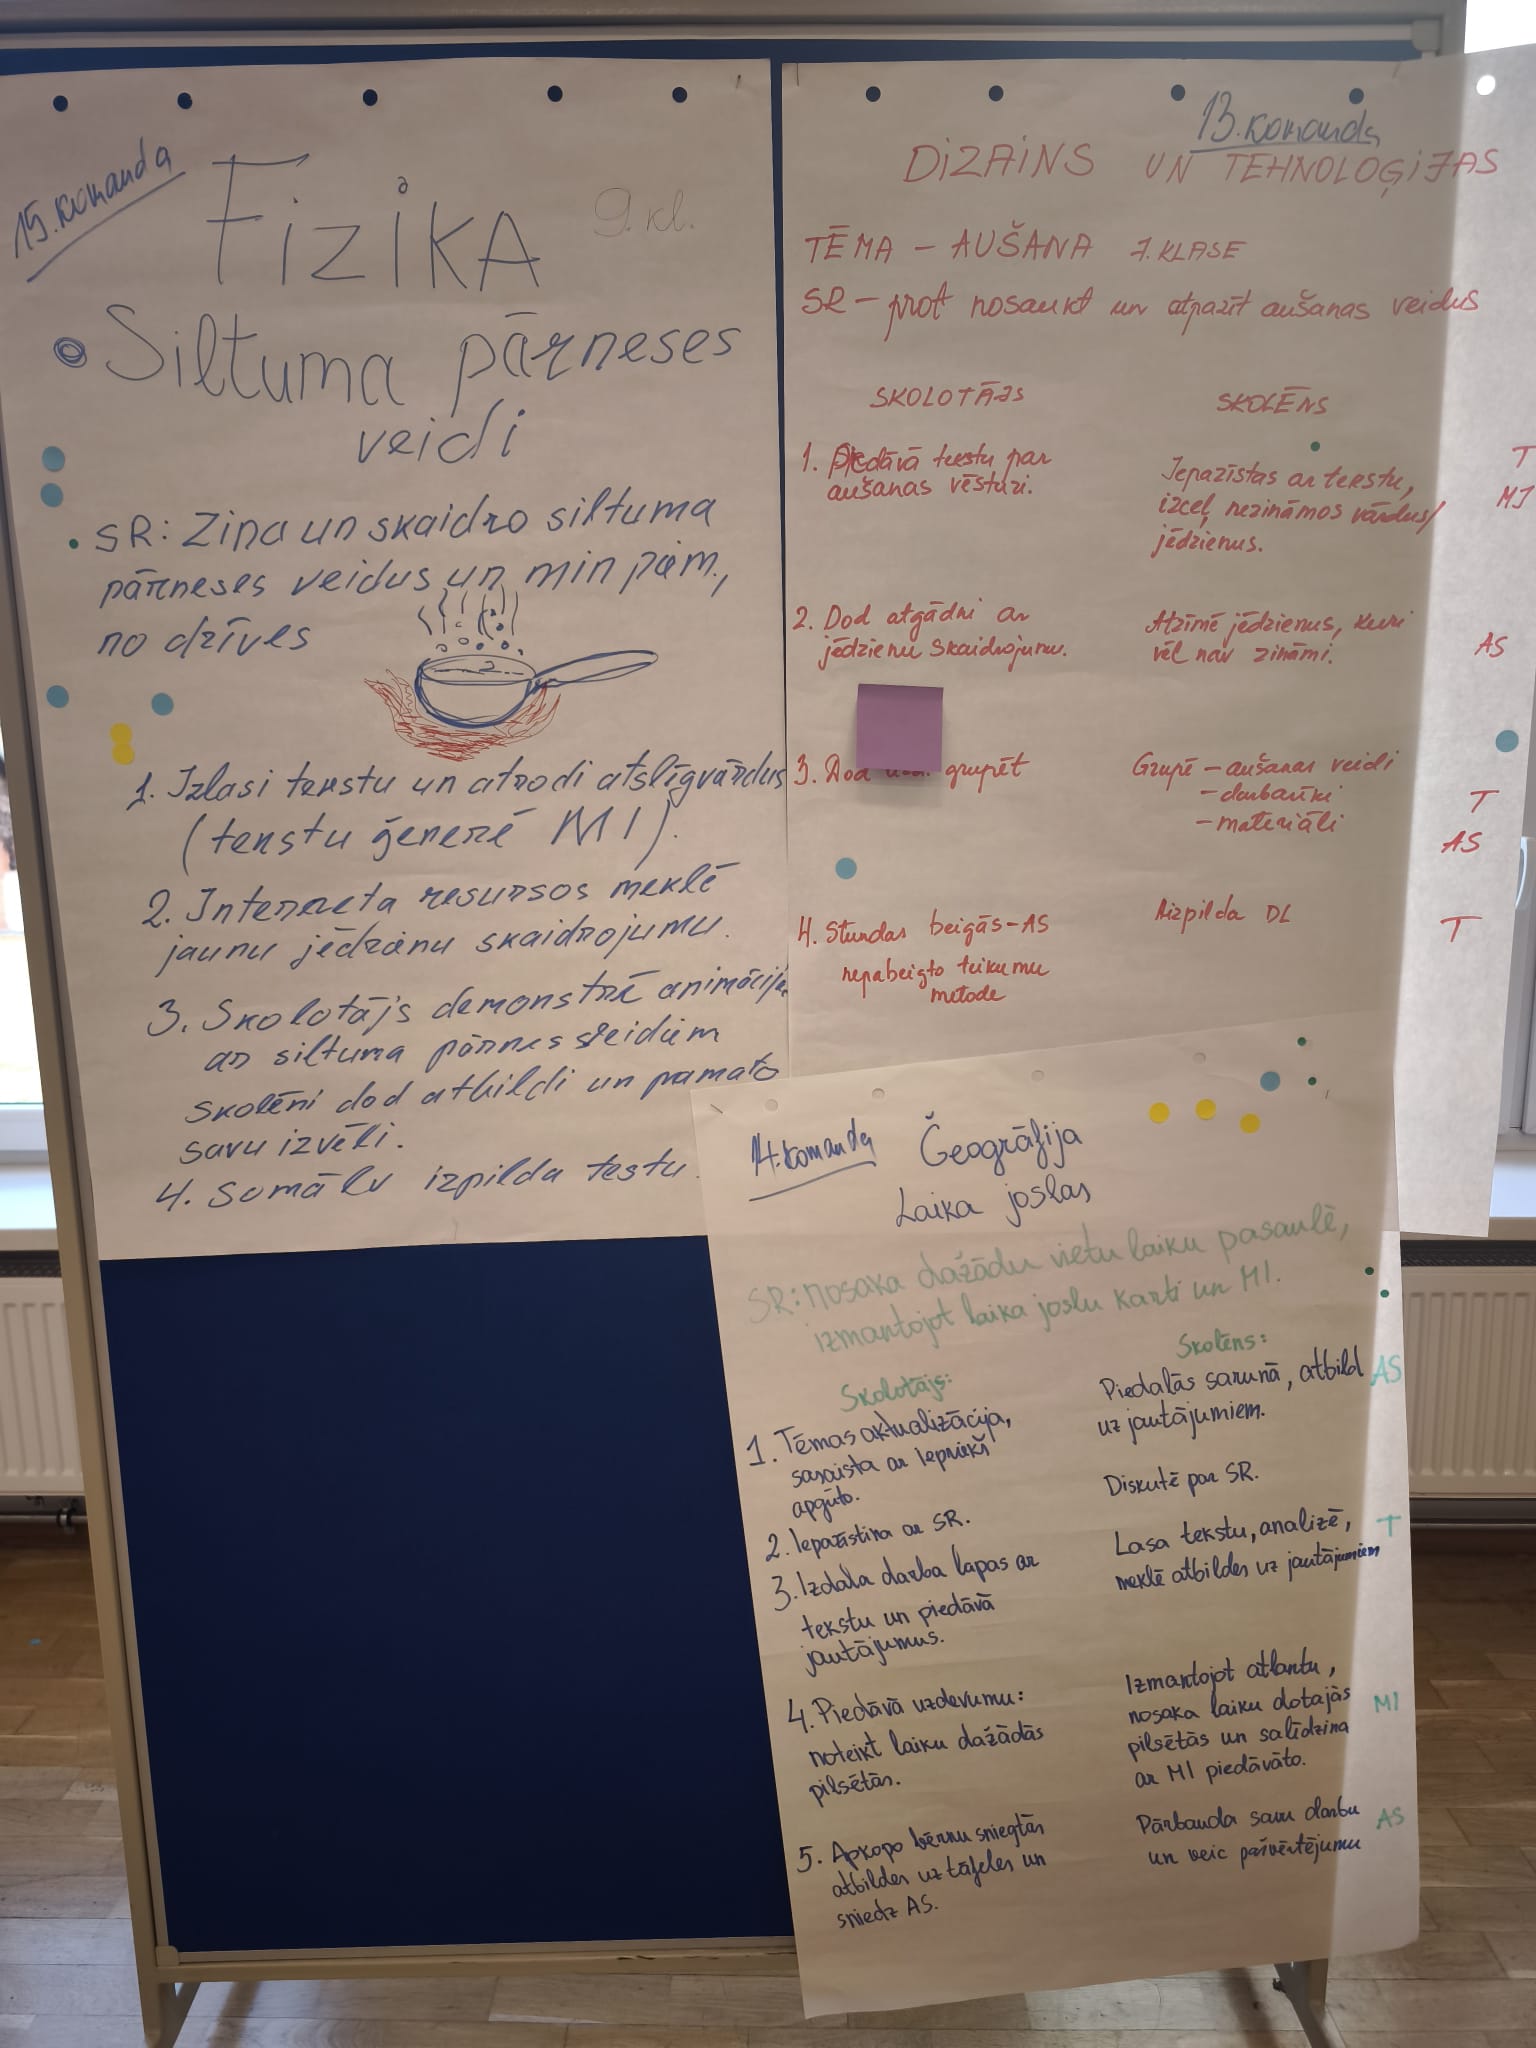 15. komanda
Fizika 9. kl.
Siltuma pārneses
veidi
SR: Zina un skaidro siltuma
pārneses veidus un min piem.,
no dzīves
1. Izlasi tekstu un atrodi atslēgvārdus
(tekstu ģenerē MI).
2. Interneta resursos meklē
jaunu jēdzienu skaidrojumu.
3. Skolotājs demonstrē
ar siltuma pārneses veidiem
skolēni dod atbildi un pamato
savu izvēli.
4. Somā Lv izpilda testu.
13. komanda
DIZAINS UN TEHNOLOĢIJAS
TĒMA – AUŠANA 7. KLASE
SR – prot nosaukt un atpazīt aušanas veidus
SKOLOTĀJS
SKOLĒNS
1. Piedāvā tekstu par
aušanas vēsturi.
Iepazīstas ar tekstu,
izceļ nezināmos vārdus/
jēdzienus.
T
MI
2. Dod atgādni ar
jēdzienu skaidrojumu.
Atzīmē jēdzienus, kuri
vēl nav zināmi.
AS
3. Dod grupēt
Grupē – aušanas veidi
– darbarīki
– materiāli
T
AS
4. Stundas beigās – AS
nepabeigto teikumu
metode
Aizpilda DL
T
14. komanda
Ģeogrāfija
Laika joslas
SR: nosaka dažādu vietu laiku pasaulē,
izmantojot laika joslu karti un MI.
Skolotājs:
Skolēns:
1. Tēmas aktualizācija,
sasaista ar iepriekš
apgūto.
Piedalās sarunā, atbild
uz jautājumiem.
AS
2. Iepazīstina ar SR.
Diskutē par SR.
3. Izdala darba lapas ar
tekstu un piedāvā
jautājumus.
Lasa tekstu, analizē,
meklē atbildes uz jautājumiem
T
4. Piedāvā uzdevumu:
noteikt laiku dažādās
pilsētās.
Izmantojot atlantu,
nosaka laiku dotajās
pilsētās un salīdzina
ar MI piedāvāto.
MI
5. Apkopo bērnu sniegtās
atbildes uz tāfeles un
sniedz AS.
Pārbauda savu darbu
un veic pašvērtējumu
AS